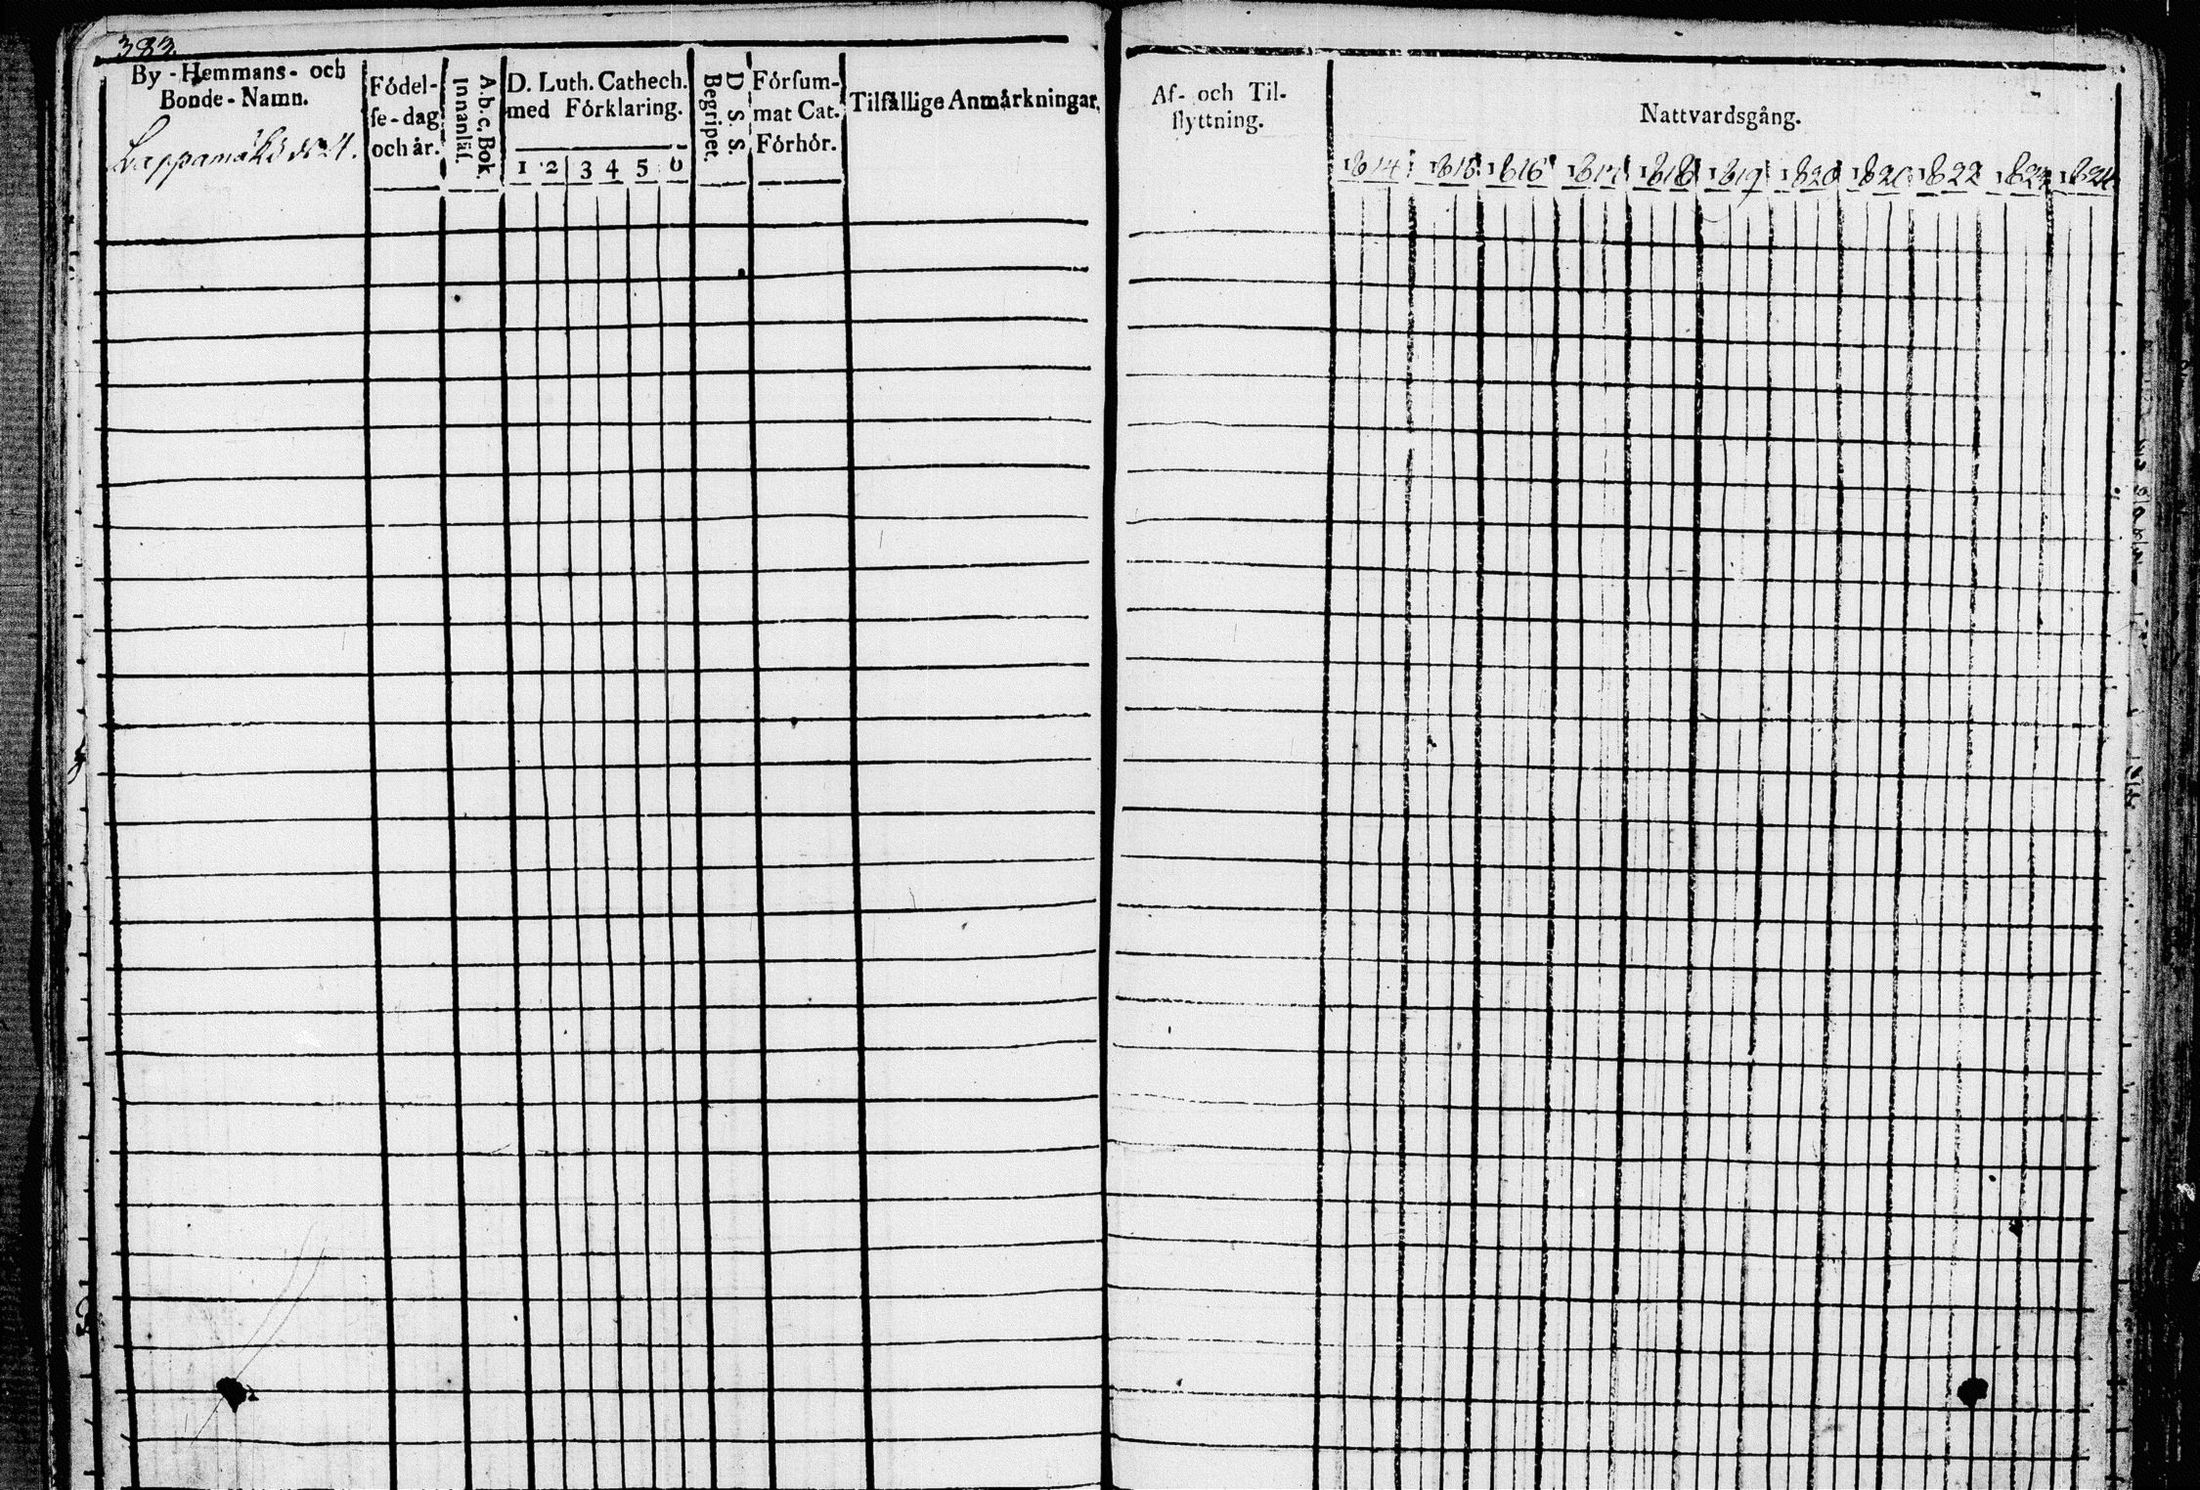 383.
By - Hemmans - och
Bonde - Namn.
Födel-
ſe - dag
och år.
A. b. c. Bok.
Innanläſ.
D. Luth. Cathech.
med Förklaring.
1 2 3 4 5 6
D. S. S.
Begripet.
Förſum-
mat Cat.
Förhör.
Tilfällige Anmärkningar.
Af- och Til-
flyttning.
Nattvardsgång.
1814 1815 1816 1817 1818 1819 1820 1820 1822 1823 1824